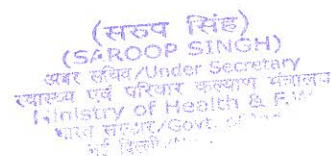 (सरूप सिंह)
(SAROOP SINGH)
अवर सचिव/Under Secretary
स्वास्थ्य एवं परिवार कल्याण मंत्रालय
Ministry of Health & F.W
भारत सरकार/Govt. of
नई दिल्ली/